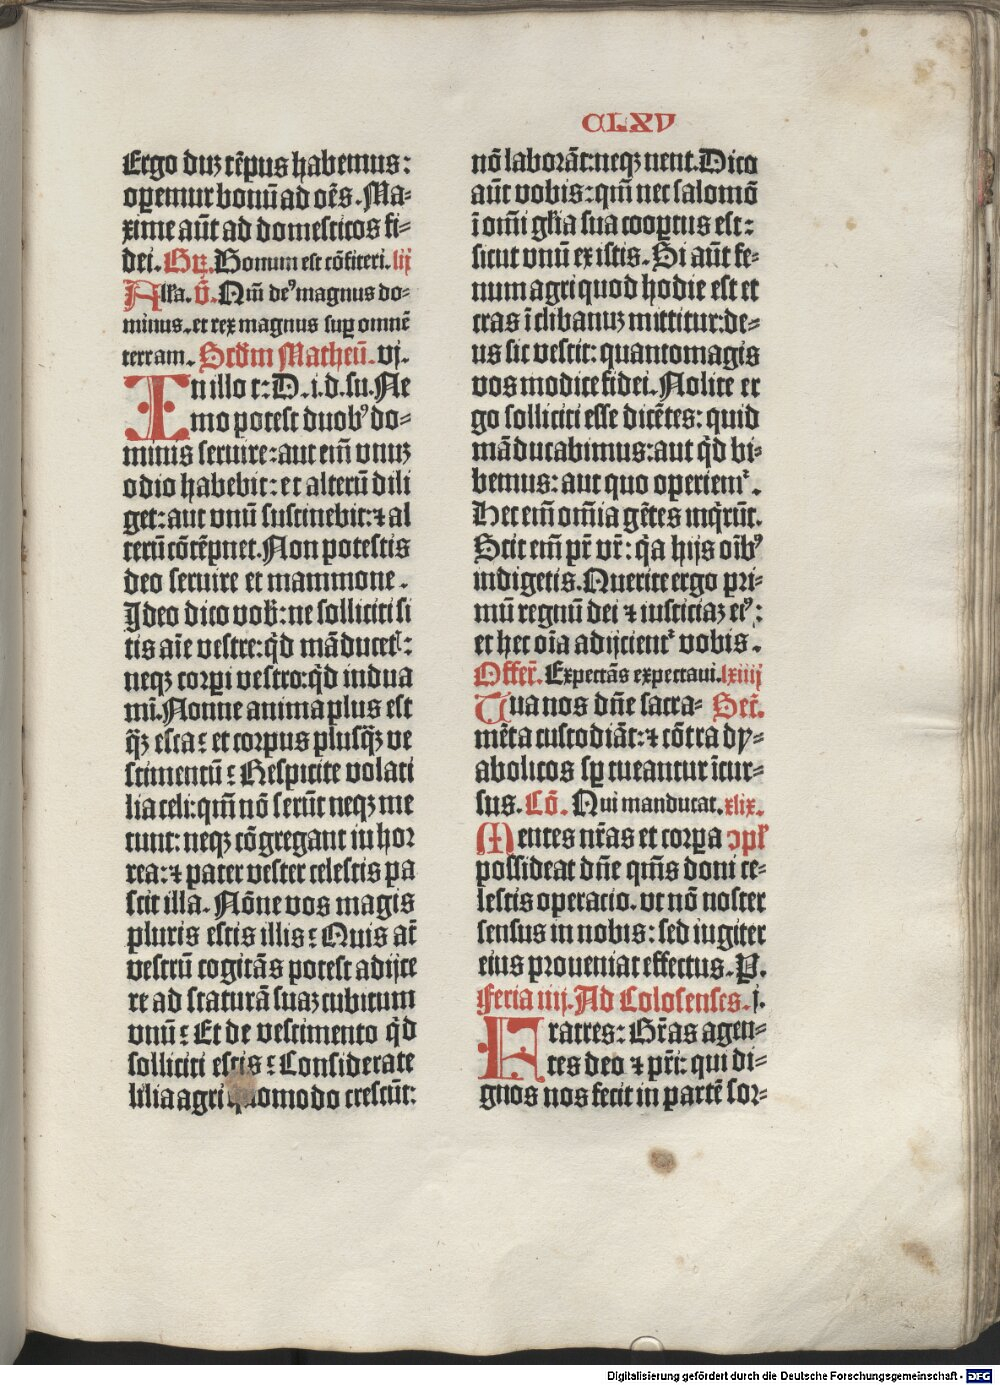 CLXV
Ergo duꝫ tēpus habemus:
operemur bonū ad oēs. Ma-
xime aūt ad domesticos fi-
dei. Gꝛ. Bonum est cōfiteri. lij
Alľa. v̄. Qm̄ deꝰ magnus do-
minus. et rex magnus sup omnē
terram. Scdm Matheū. vj.
In illo t: D. i. d. su. Ne
mo potest duobꝰ do-
minis seruire: aut em̄ vnuꝫ
odio habebit: et alterū dili
get: aut vnū sustinebit: ⁊ al
terū cōtēpnet. Non potestis
deo seruire et mammone.
Ideo dico vob̄: ne solliciti si
tis aīe vestre: qd̄ māducetꝭ:
neqꝫ corpi vestro: qd̄ indua
mī. Nonne anima plus est
q̄ꝫ esca: et corpus plusq̄ꝫ ve
stimentū: Respicite volati
lia celi: qm̄ nō serūt neqꝫ me
tunt: neqꝫ cōgregant in hor
rea: ⁊ pater vester celestis pa
scit illa. Nōne vos magis
pluris estis illis: Quis aūt
vestrū cogitās potest adijce
re ad staturā suaꝫ cubitum
vnū: Et de vestimento qd̄
solliciti estis: Considerate
lilia agri quomodo crescūt:
nō laborāt: neqꝫ nent. Dico
aūt vobis: qm̄ nec salomō
ī om̄i gľia sua cooptus est:
sicut vnū ex istis. Si aūt fe-
num agri quod hodie est et
cras ī clibanuꝫ mittitur: de-
us sic vestit: quantomagis
vos modice fidei. Nolite er
go solliciti esse dicētes: quid
māducabimus: aut qd̄ bi-
bemus: aut quo operiemr̄.
Hec em̄ om̄ia gētes inqr̄ūt.
Scit em̄ pr̄ vr̄: qa hijs oībꝰ
indigetis. Querite ergo pri-
mū regnū dei ⁊ iusticiaꝫ eiꝰ:
et hec oīa adijcientr̄ vobis.
Offer̄. Expectās expectaui. lxiiij
Tua nos dn̄e sacra- Secr̄.
mēta custodiāt: ⁊ cōtra dy-
abolicos sp tueantur īcur-
sus. Cō. Qui manducat. xlix.
Mentes nr̄as et corpa ↄpľ
possideat dn̄e qm̄s doni ce-
lestis operacio. vt nō noster
sensus in nobis: sed iugiter
eius proueniat effectus. P.
Feria iiij. Ad Colosenses. j.
Fratres: Gr̄as agen-
tes deo ⁊ pr̄i: qui di-
gnos nos fecit in partē sor-
Digitalisierung gefördert durch die Deutsche Forschungsgemeinschaft - DFG